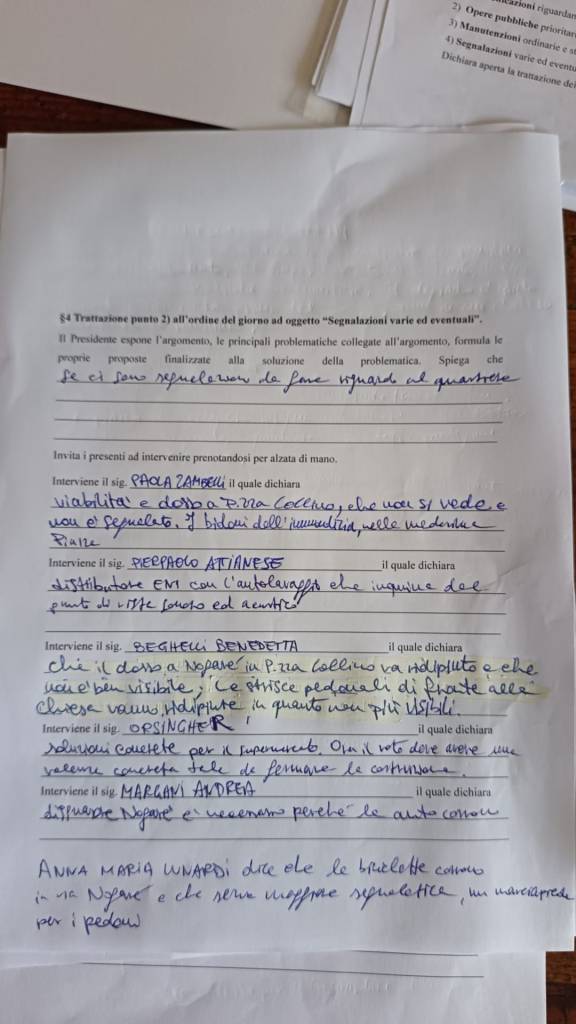 2) Opere pubbliche
3) Manutenzioni ordinarie e
4) Segnalazioni varie ed
Dichiara aperta la trattazione
§4 Trattazione punto 2) all'ordine del giorno ad oggetto “Segnalazioni varie ed eventuali”.
Il Presidente espone l'argomento, le principali problematiche collegate all'argomento, formula le
proprie proposte finalizzate alla soluzione della problematica. Spiega che
se ci sono segnalazioni da fare riguardo al quartiere
Invita i presenti ad intervenire prenotandosi per alzata di mano.
Interviene il sig. PAOLA ZAMBELLI il quale dichiara
viabilità e dosso a P.zza Collino, che non si vede e
non è segnalato. I bidoni dell'immondizia, nelle medesime
Piazze
Interviene il sig. PIERPAOLO ATTIANESE il quale dichiara
distributore ENI con l'autolavaggio che inquina dal
punto di vista sonoro ed acustico
Interviene il sig. BEGHELLI BENEDETTA il quale dichiara
che il dosso a Nogarè in P.zza Collino va ridipinto e che
non è ben visibile; Le strisce pedonali di fronte alla
chiesa vanno ridipinte in quanto non più visibili.
Interviene il sig. ORSINGHER il quale dichiara
soluzioni concrete per il supermercato. Ora il voto deve avere una
valenza concreta tale da fermare la costruzione.
Interviene il sig. MARGANI ANDREA il quale dichiara
Nogarè è necessario perché le auto corrono
ANNA MARIA LUNARDI dice che le biciclette corrono
in via Nogarè e che serve maggiore segnaletica, un marciapiede
per i pedoni